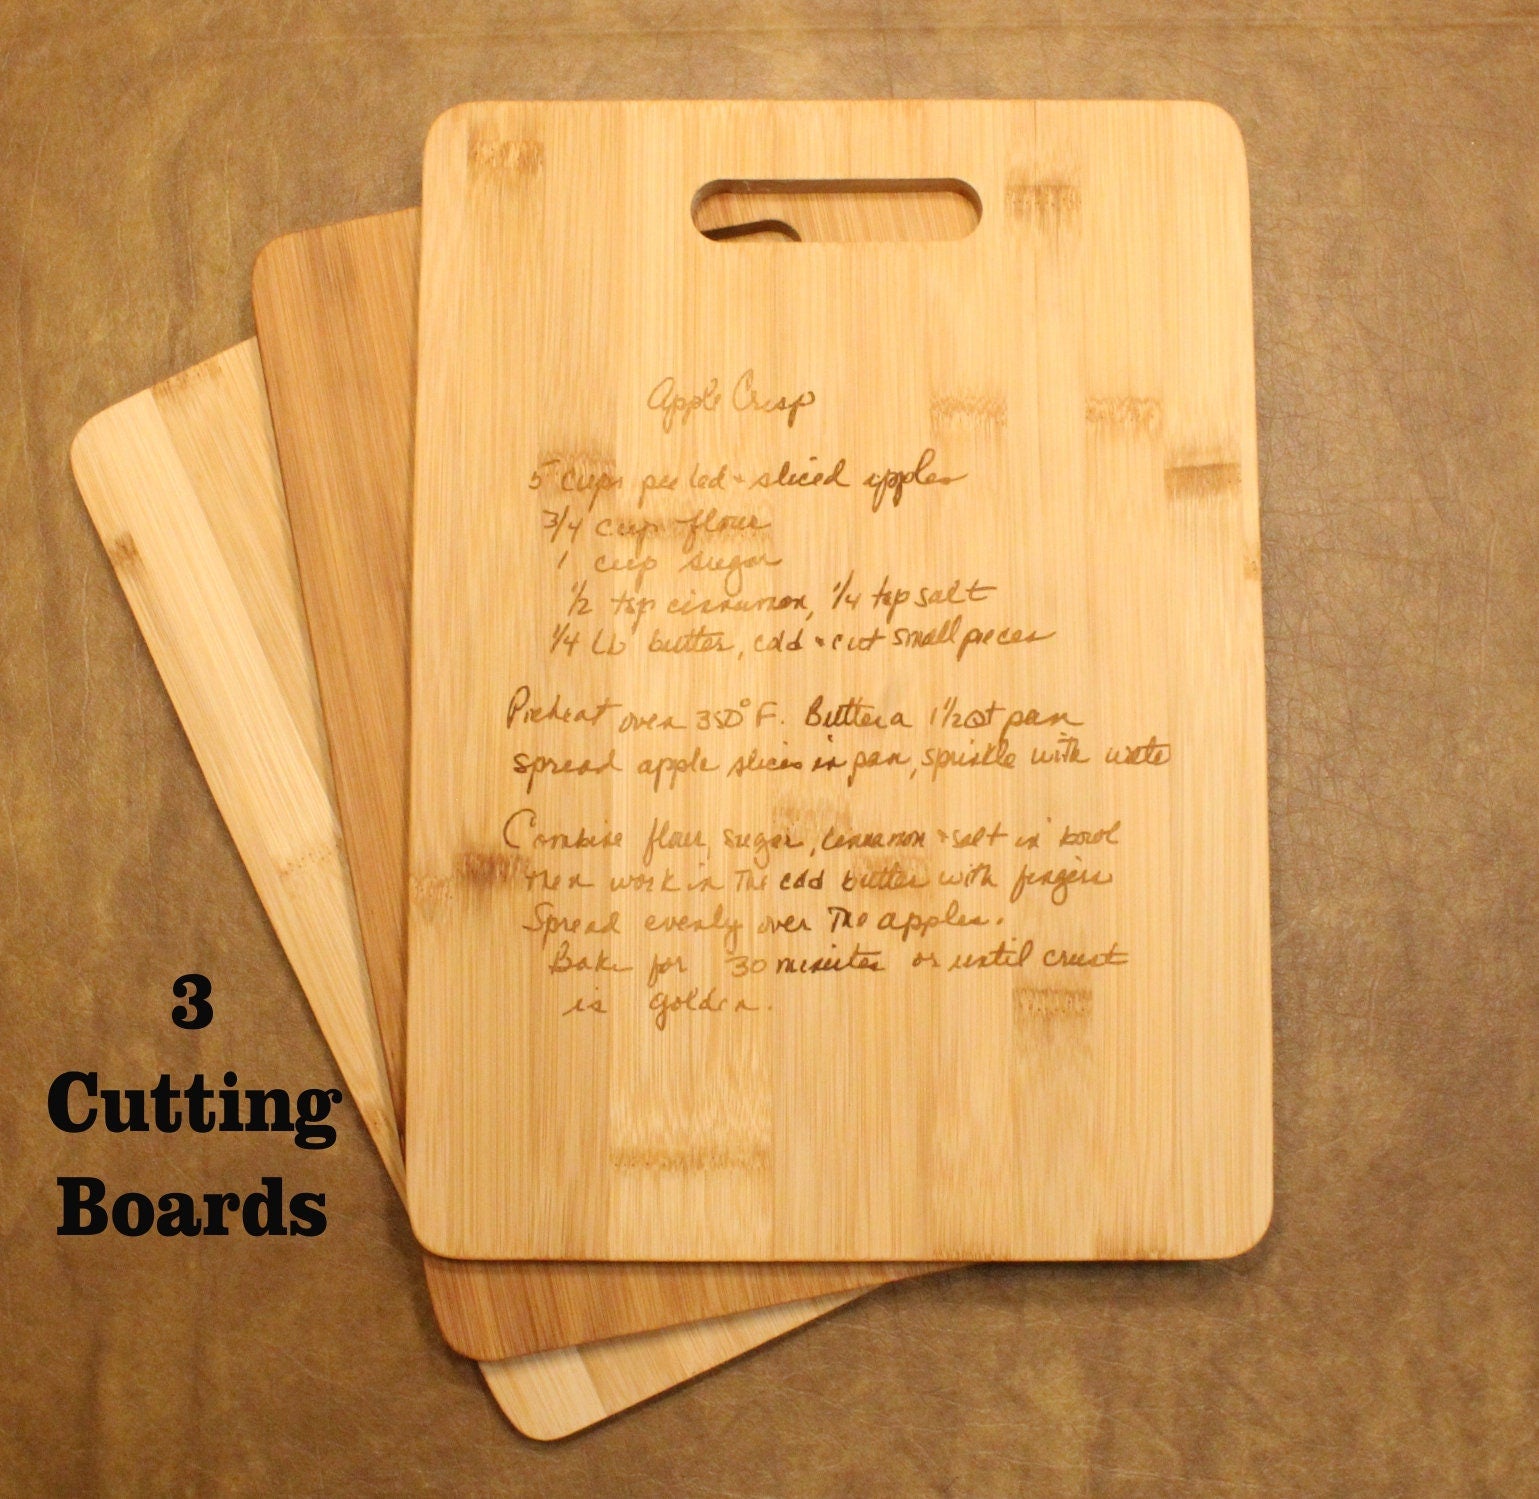 Apple Crisp
5 cups peeled + sliced apples
3/4 cup flour
1 cup sugar
1/2 tsp cinnamon, 1/4 tsp salt
1/4 Lb butter, cold + cut small pieces
Preheat oven 350° F. Butter a 1 1/2 Qt pan
spread apple slices in pan, sprinkle with wate
Combine flour, sugar, cinnamon + salt in bowl
then work in the cold butter with fingers
Spread evenly over the apples.
Bake for 30 minutes or until crust
is golden.
3
Cutting
Boards